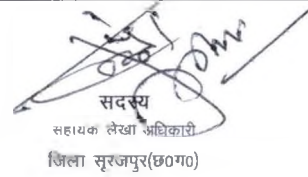 सदस्य
सहायक लेखा अधिकारी
जिला सूरजपुर(छ0ग0)